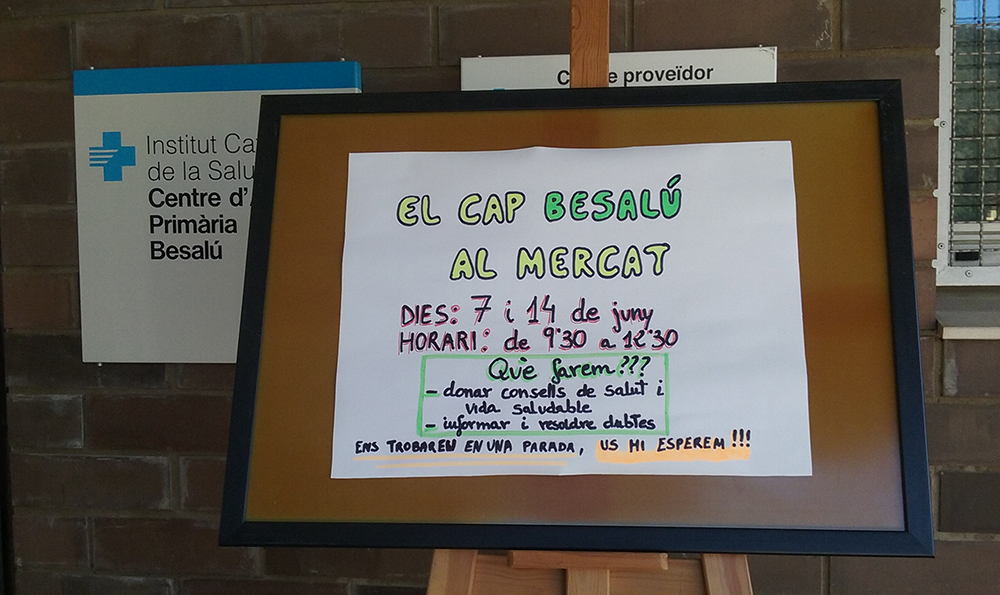 Institut Ca
de la Salu
Centre d'
Primària
Besalú
C e proveïdor
EL CAP BESALÚ
AL MERCAT
DIES: 7 i 14 de juny
HORARI: de 9'30 a 12'30
Què farem???
- donar consells de salut i
vida saludable
- informar i resoldre dubtes
ENS TROBAREU EN UNA PARADA, US HI ESPEREM!!!